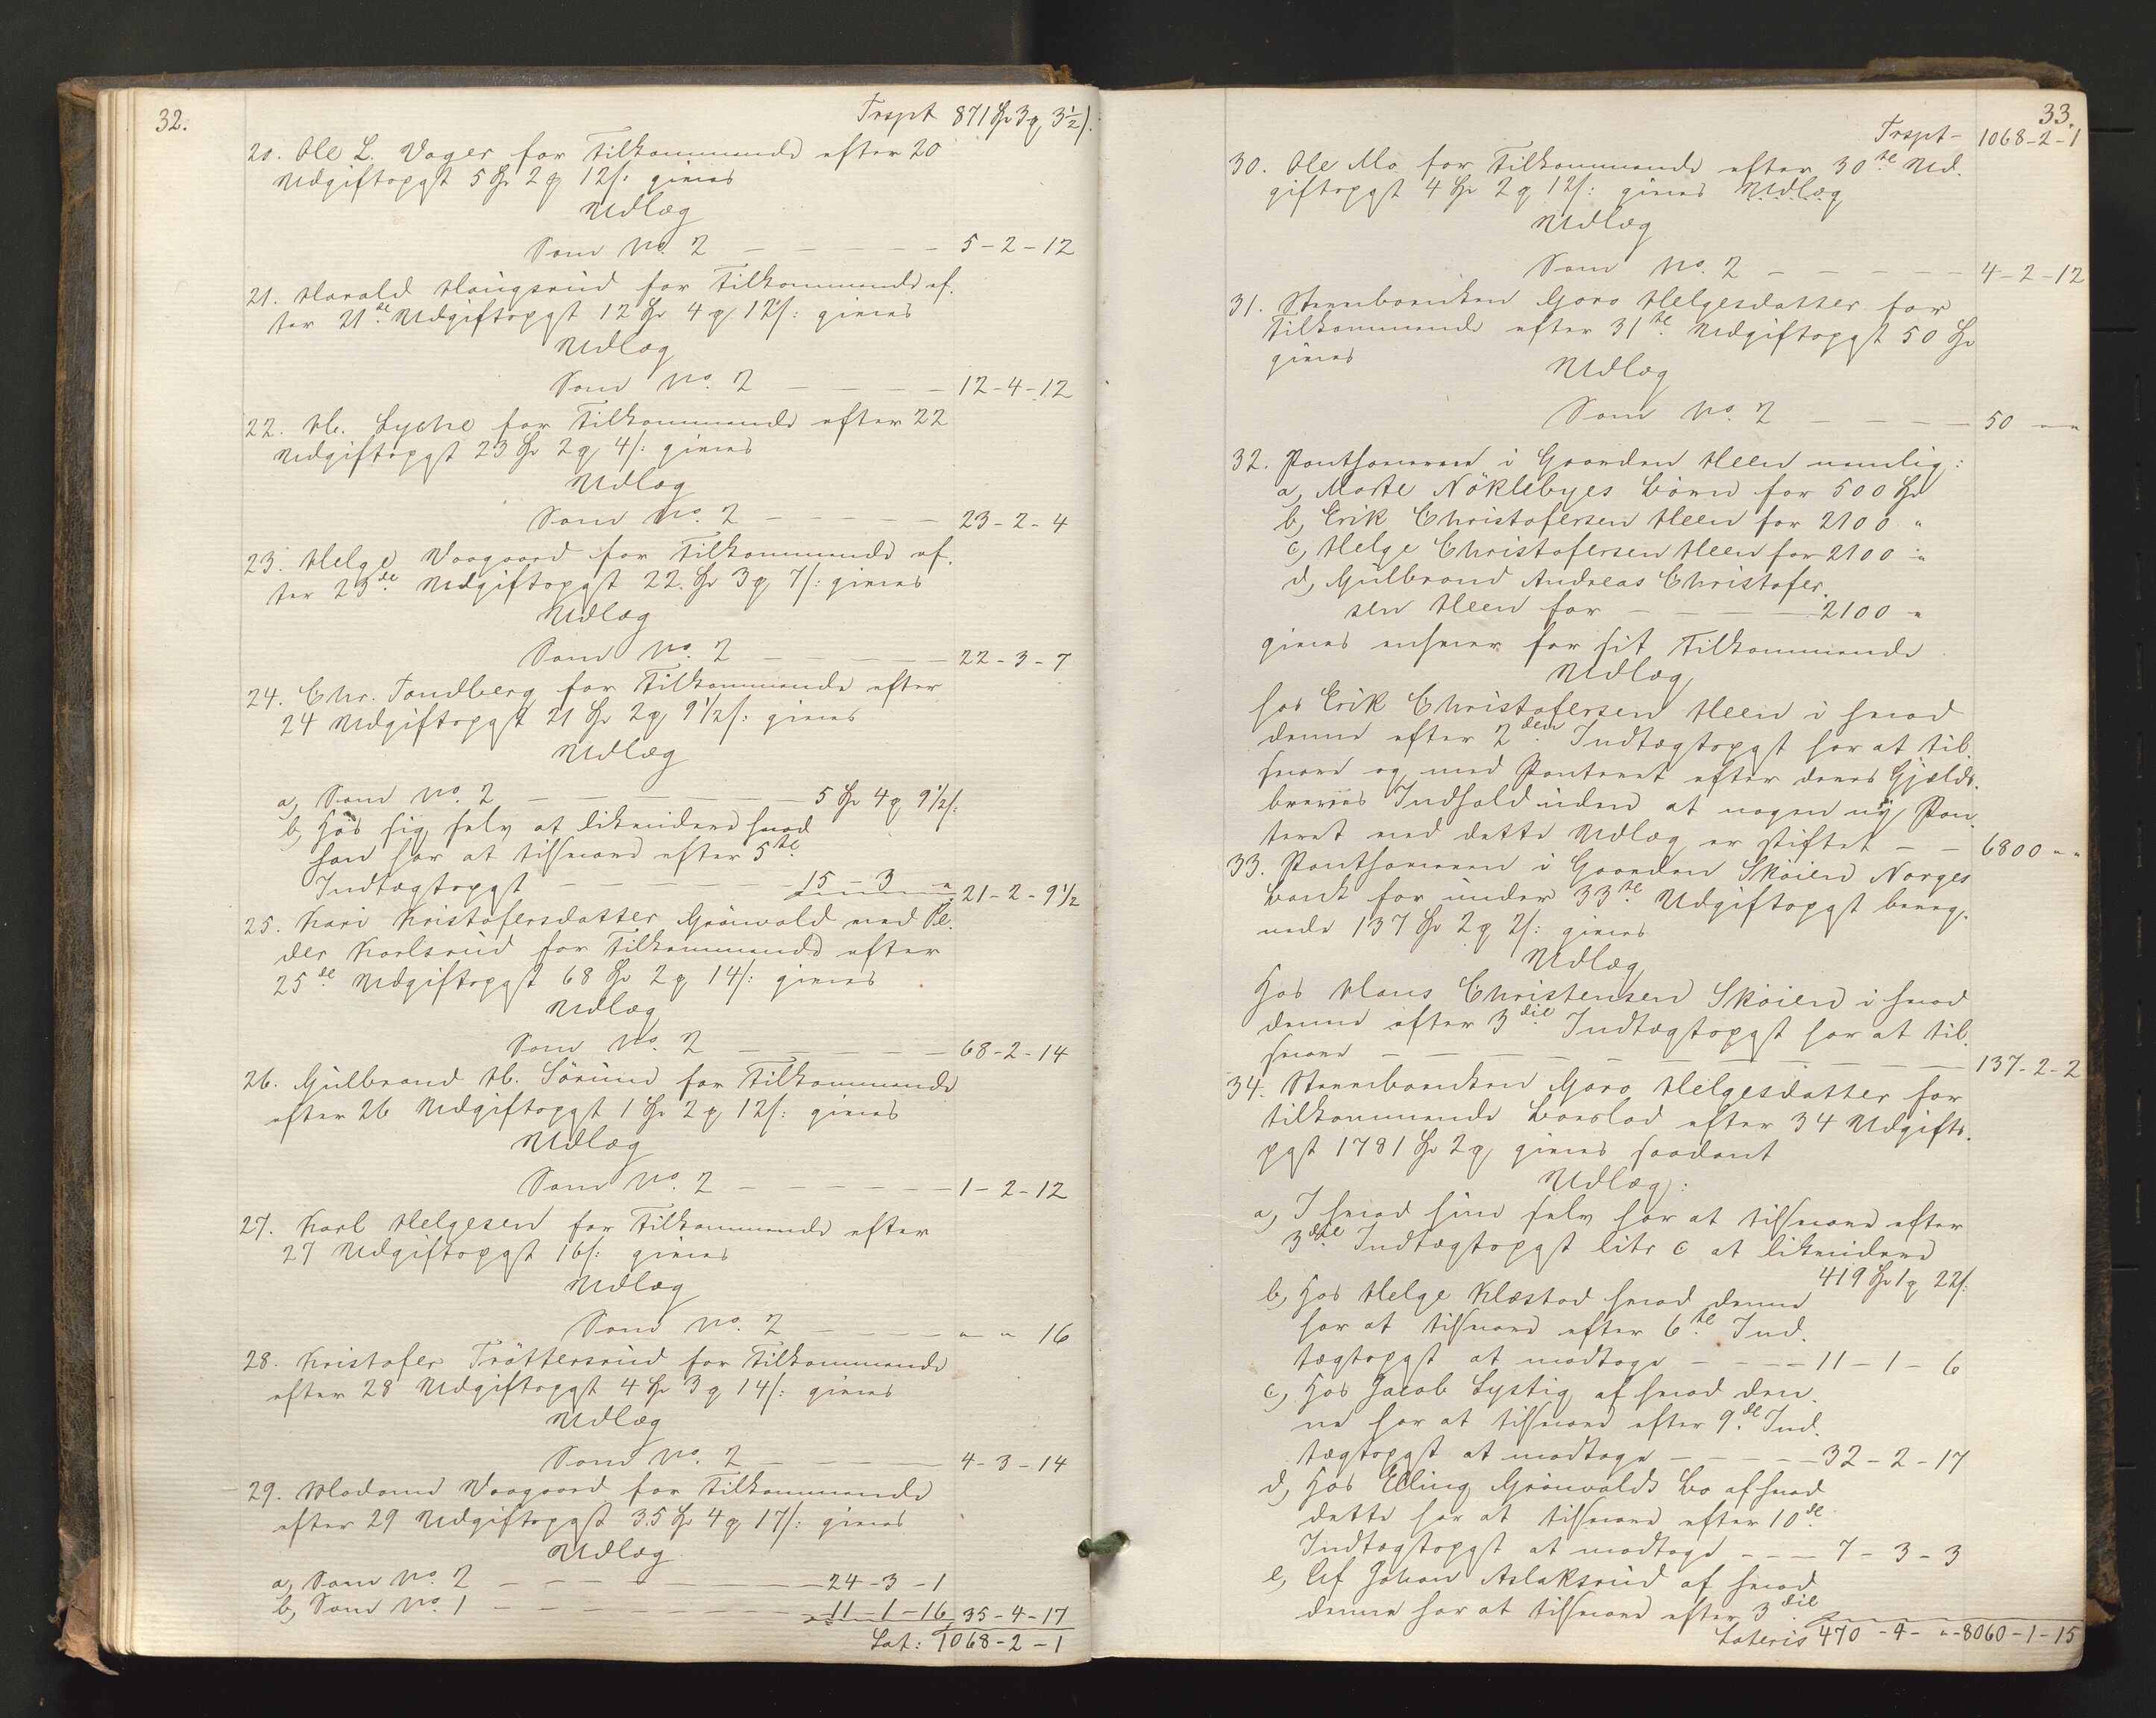 32.
Trspt 871 Spd 3 ₰ 3½ s.
20. Ole L. Vager for Tilkommende efter 20
Udgiftspgst 5 Spd 2 ₰ 12 s: gives
Udlæg
Som No. 2 — — — — — 5 - 2 - 12
21. Harald Haugsrud for Tilkommende ef-
ter 21de Udgiftspgst 12 Spd 4 ₰ 12 s: gives
Udlæg
Som No. 2 — — — — 12 - 4 - 12
22. H. Lyche for Tilkommende efter 22
Udgiftspgst 23 Spd 2 ₰ 4 s: gives
Udlæg
Som No. 2 — — — — 23 - 2 - 4
23. Helge Vaagaard for Tilkommende ef-
ter 23de Udgiftspgst 22 Spd 3 ₰ 7 s: gives
Udlæg
Som No. 2 — — — — 22 - 3 - 7
24. Chr. Tandberg for Tilkommende efter
24 Udgiftspgst 21 Spd 2 ₰ 9½ s: gives
Udlæg
a, Som No. 2 — — — — 5 Spd 4 ₰ 9½ s:
b, Hos sig selv at likvidere hvad
han har at tilsvare efter 5te
Indtægtspgst — — — — 15 - 3 " 21 - 2 - 9½
25. Kari Kristofersdatter Grönvold med Pe-
der Karlsrud for Tilkommende efter
25de Udgiftspgst 68 Spd 2 ₰ 14 s: gives
Udlæg
Som No. 2 — — — — 68 - 2 - 14
26. Gulbrand H. Sörum for Tilkommende
efter 26 Udgiftspgst 1 Spd 2 ₰ 12 s: gives
Udlæg
Som No. 2 — — — — 1 - 2 - 12
27. Karl Helgesen for Tilkommende efter
27 Udgiftspgst 16 s: gives
Udlæg
Som No. 2 — — — — " " 16
28. Kristofer Tröttersrud for Tilkommende
efter 28 Udgiftspgst 4 Spd 3 ₰ 14 s: gives
Udlæg
Som No. 2 — — — — 4 - 3 - 14
29. Madame Vaagaard for Tilkommende
efter 29 Udgiftspgst 35 Spd 4 ₰ 17 s: gives
Udlæg
a, Som No. 2 — — — — 24 - 3 - 1
b, Som No. 1 — — — — 11 - 1 - 16 35 - 4 - 17
Lat: 1068 - 2 - 1
33.
Trspt - 1068 - 2 - 1
30. Ole Mo for Tilkommende efter 30te Ud-
giftspgst 4 Spd 2 ₰ 12 s: gives Udlæg
Udlæg
Som No. 2 — — — — — 4 - 2 - 12
31. Stervboenken Goro Helgesdatter for
Tilkommende efter 31te Udgiftspgst 50 Spd
gives
Udlæg
Som No. 2 — — — — 50 " "
32. Panthaverne i Gaarden Heen nemlig:
a, Marte Nöklebyes Börn for 500 Spd
b, Erik Christofersen Heen for 2100 "
c, Helge Christofersen Heen for 2100 "
d, Gulbrand Andreas Christofer-
sen Heen for — — — 2100 "
gives enhver for sit Tilkommende
Udlæg
hos Erik Christofersen Heen i hvad
denne efter 2den Indtægtspgst har at til-
svare og med Panteret efter deres Gjelds-
brevets Indhold uden at nogen ny Pan-
teret med dette Udlæg er stiftet — — 6800 " "
33. Panthaveren i Gaarden Sköien Norges
Bank for under 33te Udgiftspgst bereg-
nede 137 Spd 2 ₰ 2 s: gives
Udlæg
Hos Hans Christensen Skoien i hvad
denne efter 3die Indtægtspgst har at til-
svare — — — — — — 137 - 2 - 2
34. Stervboenken Goro Helgesdatter for
tilkommende Boeslod efter 34 Udgifts-
pgst 1781 Spd 2 ₰ gives saadant
Udlæg:
a, I hvad hun selv har at tilsvare efter
3die Indtægtspgst litr c at likvidere
419 Spd 1 ₰ 22 s:
b, Hos Helge Klæstad hvad denne
har at tilsvare efter 6te Ind-
tægtspgst at modtage — — — 11 - 1 - 6
c, Hos Jacob Lystig af hvad den-
ne har at tilsvare efter 9de Ind-
tægtspgst at modtage — — — 32 - 2 - 17
d, Hos Elling Grönvolds Bo af hvad
dette har at tilsvare efter 10de
Indtægtspgst at modtage — — 7 - 3 - 3
e, Af Johan Aslaksrud af hvad
denne har at tilsvare efter 3die
Lateris 470 - 4 - " - 8060 - 1 - 15